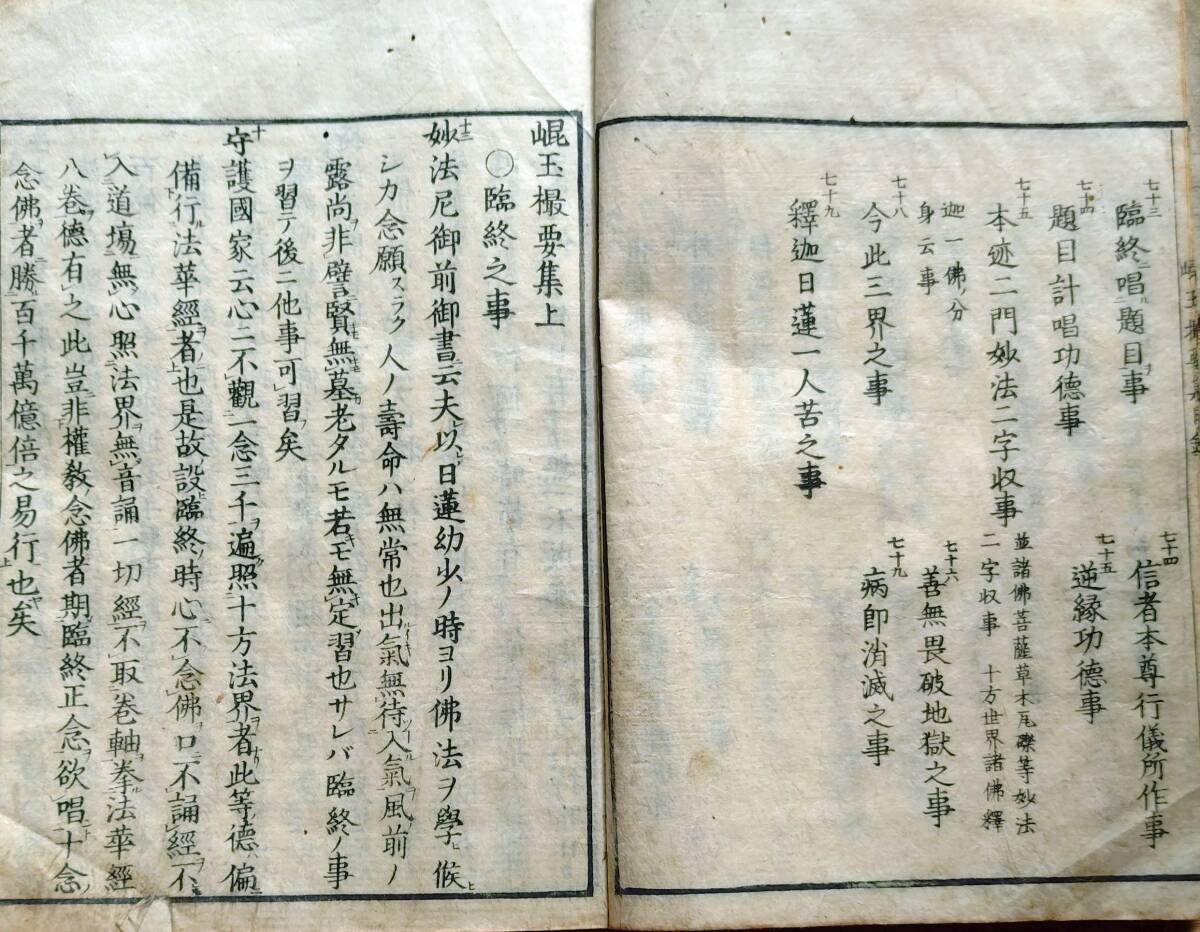 七十三
臨終ニ唱ル題目ヲ事
七十四
信者本尊行儀所作事
七十四
題目計唱功德事
七十五
逆縁功德事
七十五
本迹二門妙法二字收事
並諸佛菩薩草木瓦礫等妙法
二字収事 十方世界諸佛釋
迦一佛ノ分
身云事
七十六
善無畏破地獄之事
七十八
今此三界之事
七十九
病即消滅之事
七十九
釋迦日蓮一人苦之事
崐玉撮要集上
〇臨終之事
十三
妙法尼御前御書云夫以日蓮幼少ノ時ヨリ佛法ヲ學候
シカ念願スラク人ノ壽命ハ無常也出氣無待入氣風前ノ
露尚非譬賢無墓老タルモ若モ無定習也サレバ臨終ノ事
ヲ習テ後ニ他事可習矣
十
守護國家云心ニ不觀一念三千遍照十方法界者此等德偏
備行法華經者也是故設臨終時心不念佛口不誦經不
入道場無心照法界無音誦一切經不取卷軸拳法華經
八卷德有之此豈非權敎念佛者期臨終正念欲唱十念
念佛者勝百千萬億倍之易行也矣